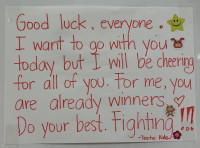 Good luck, everyone.
I want to go with you
today but I will be cheering
for all of you. For me, you
are already winners.
Do your best. Fighting!!!